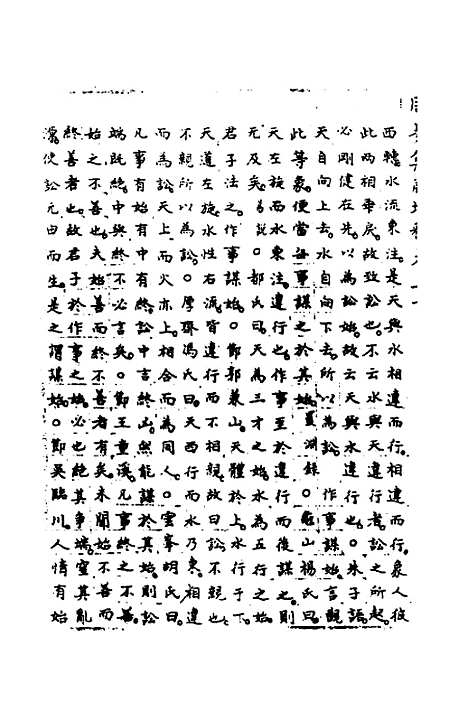 西轉水流東注是天與水相違而行相違而行象人彼
此兩相乖戾故致訟也不云水與天違行者訟之所起
必剛健在先以為訟始故云天與水違行也。朱子語
天自向上去水自向下去所以為訟 作事謀始言觀
此等象便當每事謀之於其始夏淵錄。龜山楊氏曰
天左旋而水東注違行也作事至於違行而後謀之則
无及矣易說。都氏曰天為三才之始水為五行之始
君子法之作事謀始。節郭兼山天體於上水行于下
天道左旋水性右流皆違行而不相親故曰訟不親也
不親所以為訟。厚齋馮氏曰天西行而水乃東相違
而為訟天上火亦上相合而為同人。雲峯胡氏曰
凡事有始有中有終訟中言終凶然能謀於其始則訟
端既絕中與終不必言矣。節王童溪凡事終之不善
始之不善也夫始善而終不善者有矣未聞始不善而
終善者也故君子於作事之始必也絕其爭端窒其亂
源使訟无由而生是之謂謀始。節吳臨川人情有始